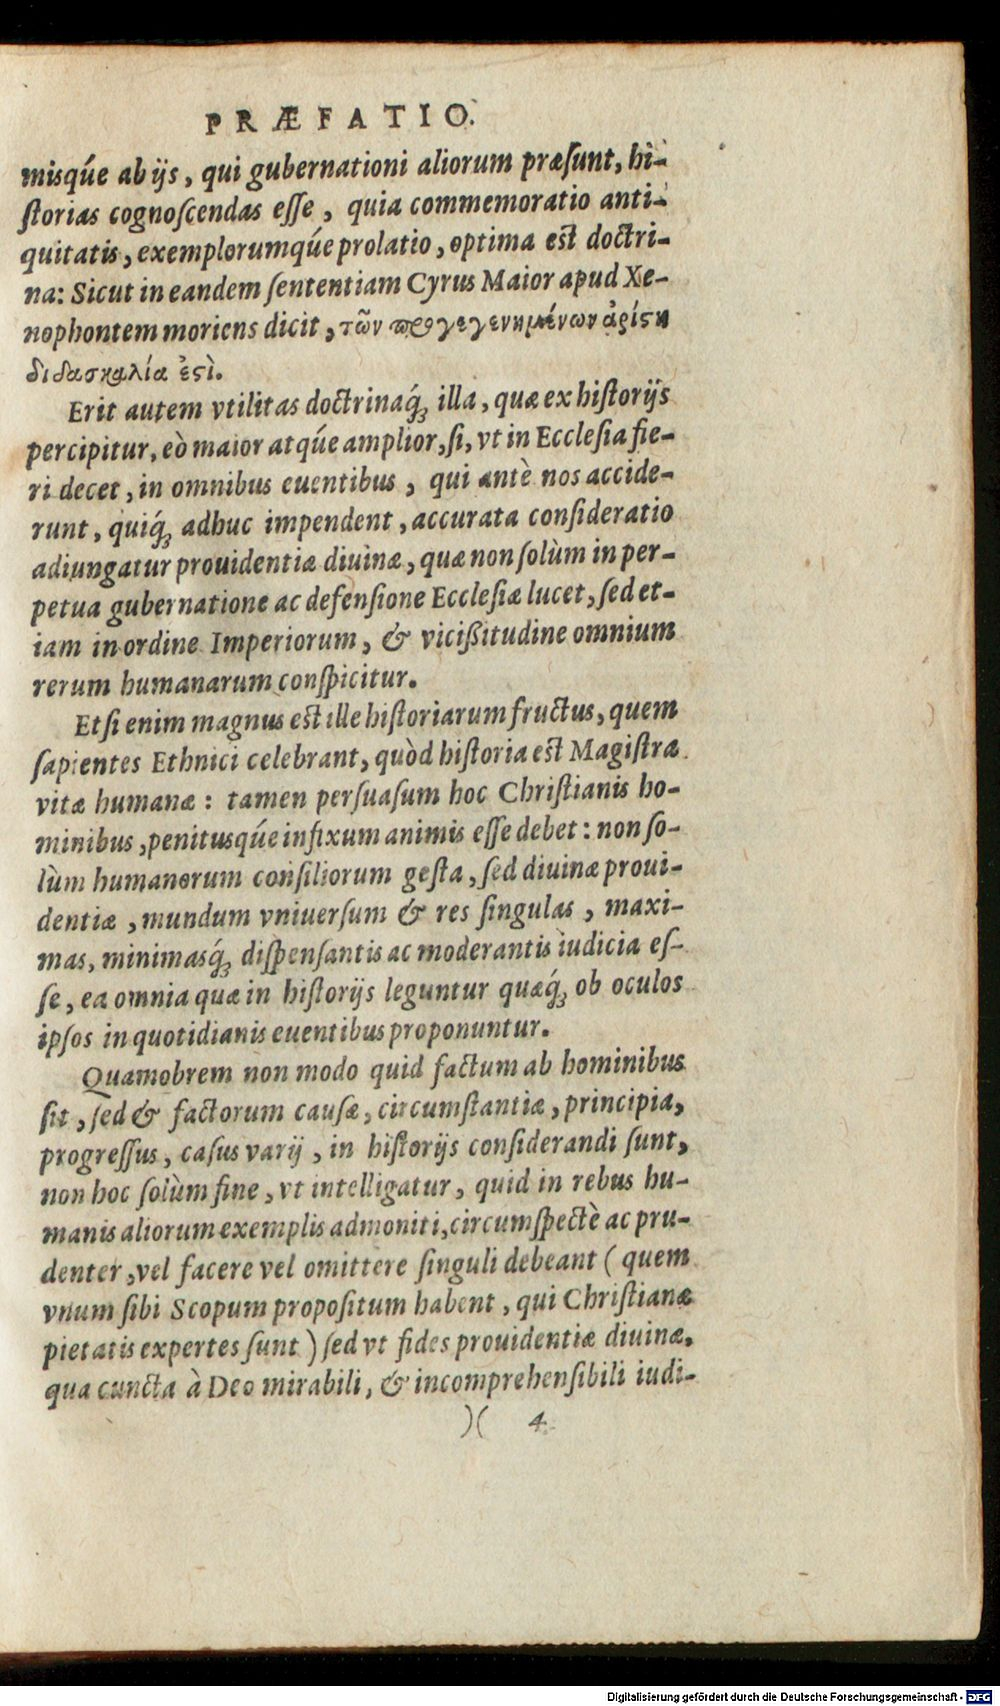 PRÆFATIO.
misq́ue ab ijs, qui gubernationi aliorum præſunt, hi-
ſtorias cognoſcendas eſſe, quia commemoratio anti-
quitatis, exemplorumq́ue prolatio, optima est doctri-
na: Sicut in eandem ſententiam Cyrus Maior apud Xe-
nophontem moriens dicit, τῶν προγεγενημένων ἀρίϛη
διδασκαλία ἐϛὶ.
Erit autem vtilitas doctrinaq́ꝫ illa, quæ ex hiſtorijs
percipitur, eò maior atq́ue amplior, ſi, vt in Eccleſia fie-
ri decet, in omnibus euentibus, qui antè nos accide-
runt, quiq́ꝫ adhuc impendent, accurata conſideratio
adiungatur prouidentiæ diuinæ, quæ non ſolùm in per-
petua gubernatione ac defenſione Eccleſiæ lucet, ſed et-
iam in ordine Imperiorum, & vicißitudine omnium
rerum humanarum conſpicitur.
Etſi enim magnus est ille hiſtoriarum fructus, quem
ſapientes Ethnici celebrant, quòd hiſtoria est Magiſtra
vitæ humanæ: tamen perſuaſum hoc Chriſtianis ho-
minibus, penitusq́ue infixum animis eſſe debet: non ſo-
lùm humanorum conſiliorum geſta, ſed diuinæ proui-
dentiæ, mundum vniuerſum & res ſingulas, maxi-
mas, minimasq́ꝫ diſpenſantis ac moderantis iudicia eſ-
ſe, ea omnia quæ in hiſtorijs leguntur quæq́ꝫ ob oculos
ipſos in quotidianis euentibus proponuntur.
Quamobrem non modo quid factum ab hominibus
ſit, ſed & factorum cauſæ, circumſtantiæ, principia,
progreſſus, caſus varij, in hiſtorijs conſiderandi ſunt,
non hoc ſolùm fine, vt intelligatur, quid in rebus hu-
manis aliorum exemplis admoniti, circumſpectè ac pru-
denter, vel facere vel omittere ſinguli debeant (quem
vnum ſibi Scopum propoſitum habent, qui Chriſtianæ
pietatis expertes ſunt) ſed vt fides prouidentiæ diuinæ,
qua cuncta à Deo mirabili, & incomprehenſibili iudi-
)( 4
Digitalisierung gefördert durch die Deutsche Forschungsgemeinschaft - DFG